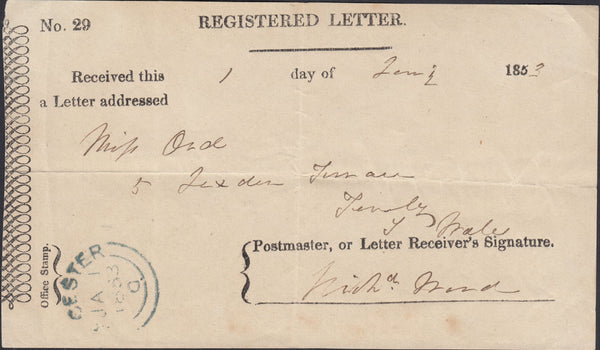 No. 29
REGISTERED LETTER.
Received this 1 day of Jany 1853
a Letter addressed
Miss Ord
5 Lexden Terrace
Tenby
S Wales
Office Stamp.
CESTER
JA 1
1853
C
Postmaster, or Letter Receiver's Signature.
Richd. Wood